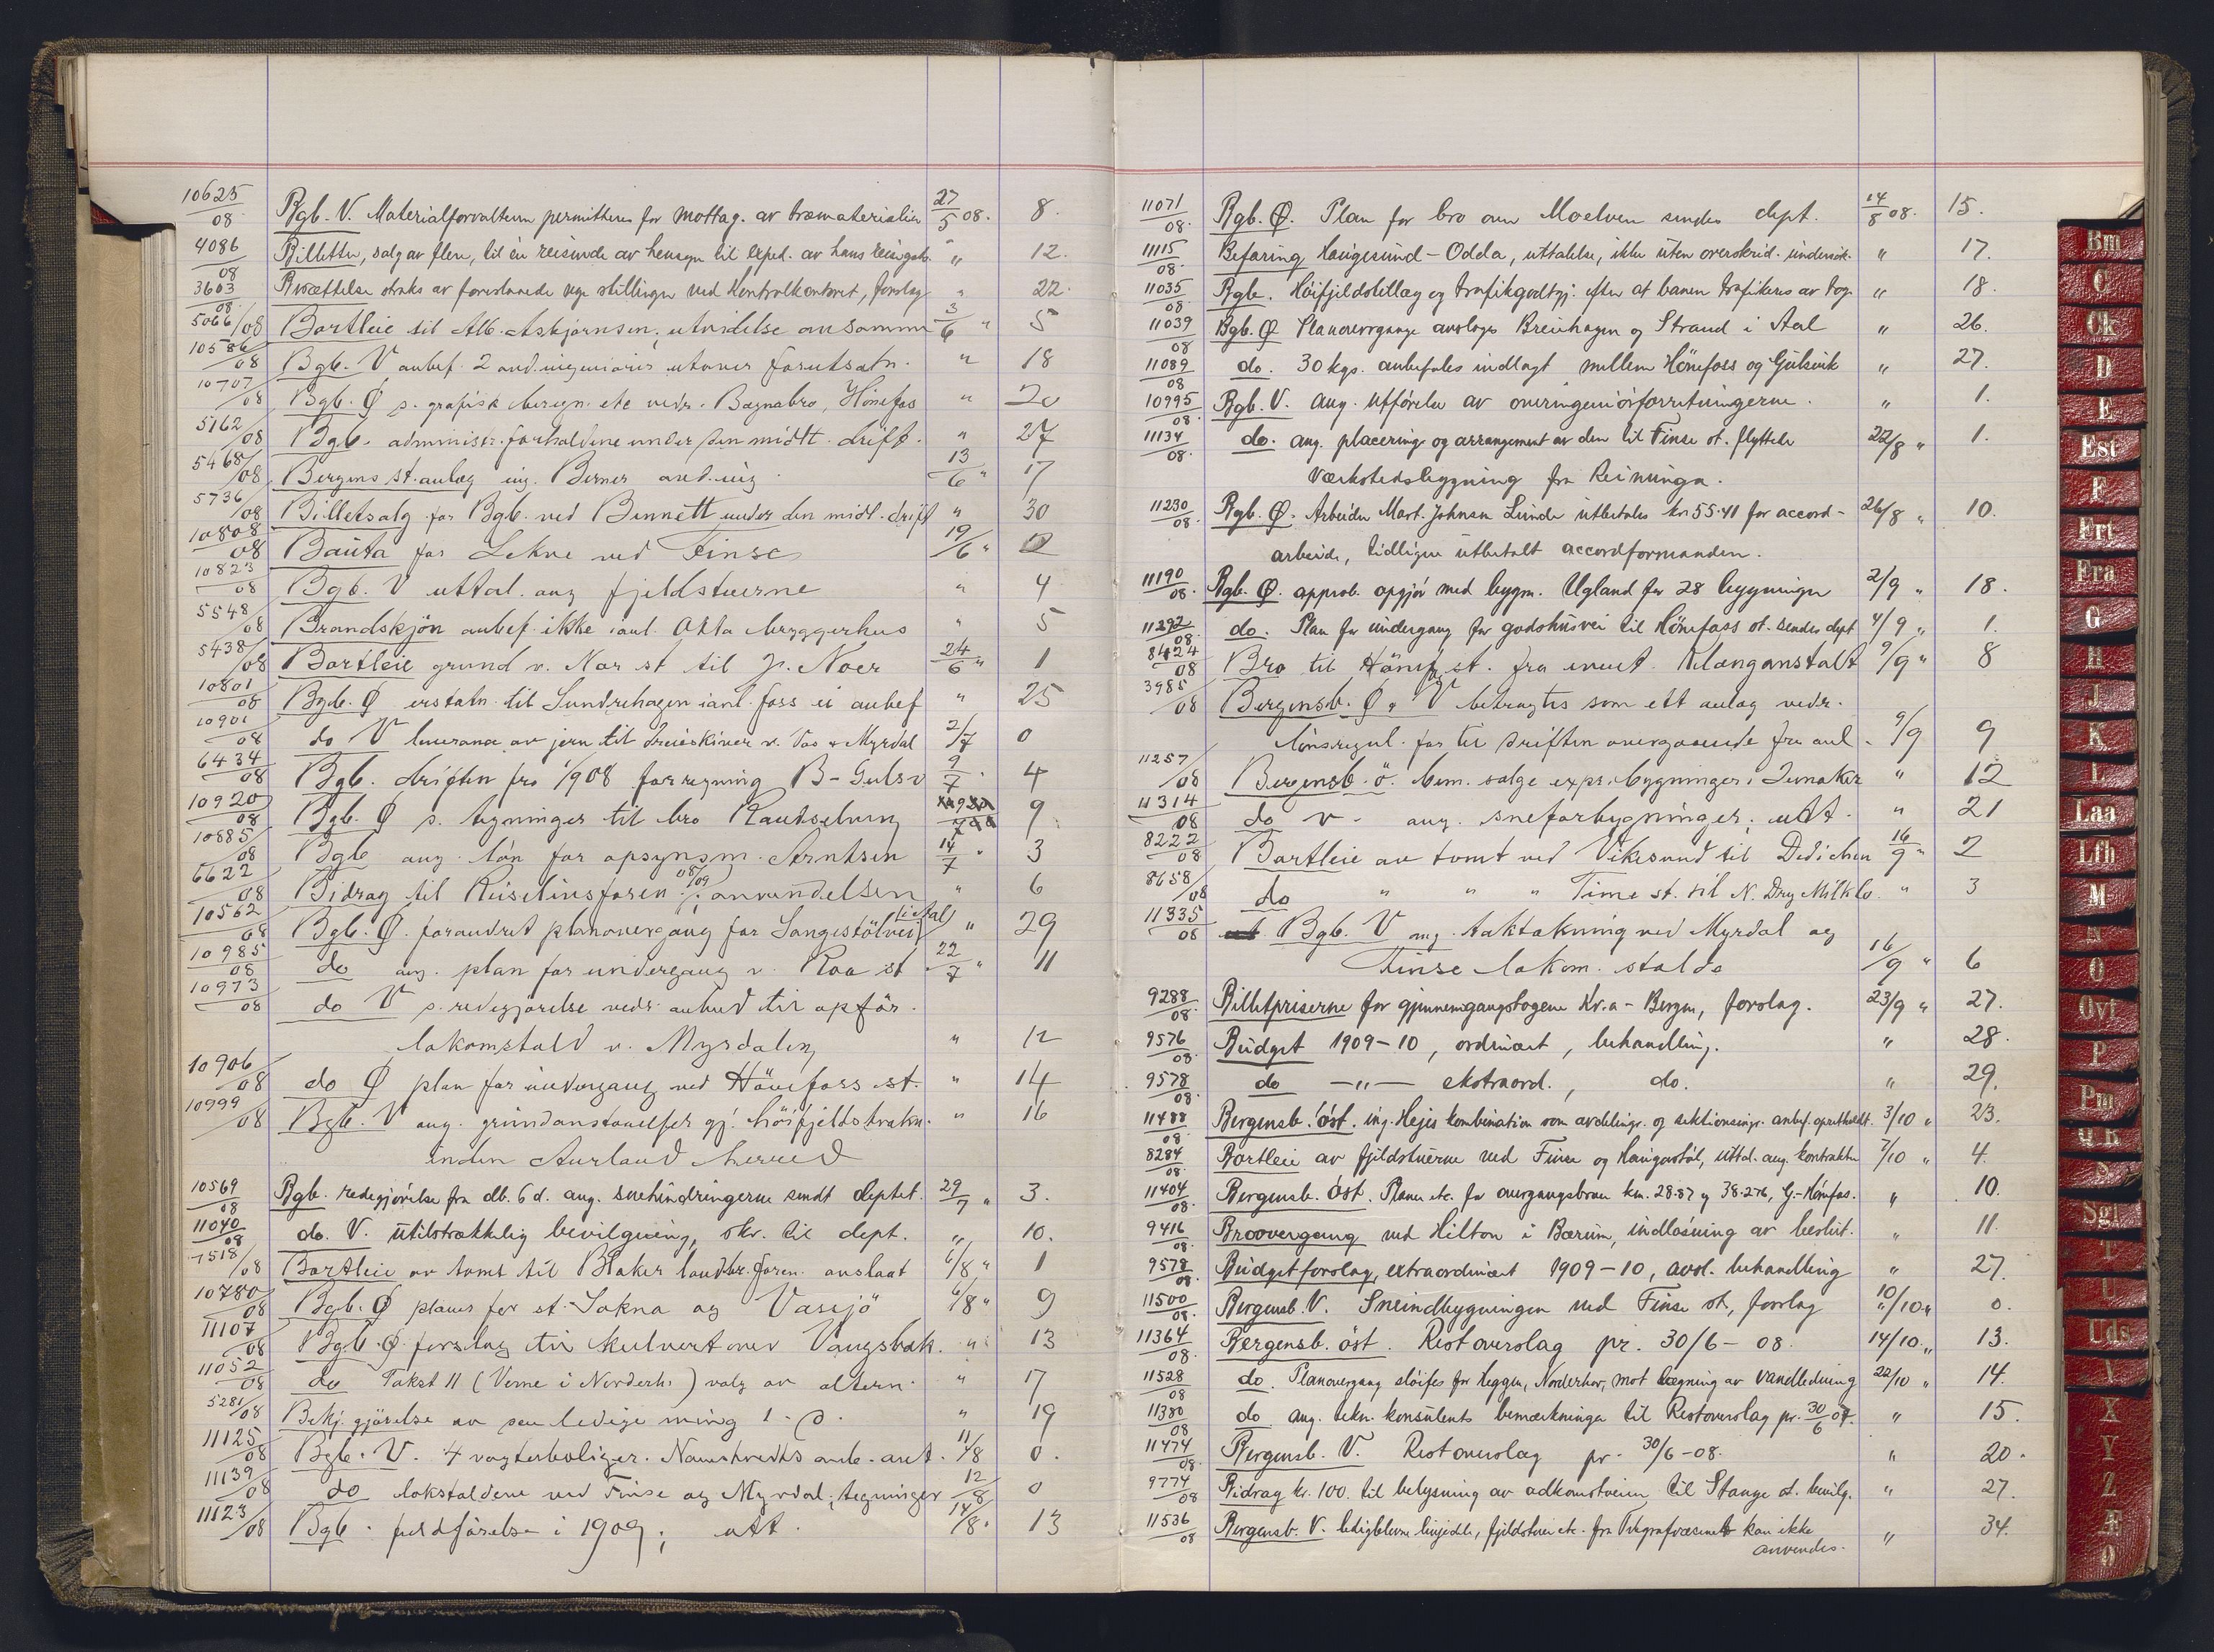 10625/08 Bgb. V. Materialforvalteren permitteres for mottag. av træmaterialier 27/5 08. 8.
4086/08 Billetter, salg av flere, til én reisende av hensyn til exped. av hans reisegods. " 12.
3603/08 Besættelse straks av foreslaaede nye stillinger ved Kontrolkontoret, forslag " 22.
5066/08 Bortleie til Alb. Asbjørnsen, utvidelse av samme 3/6 " 5
10586/08 Bgb. V anbef. 2 avd.ingeniører utover forutsætn. " 18
10707/08 Bgb. Ø s. grafisk beregn. etc vedr. Bægnabro, Hönefos " 20
5162/08 Bgb. administr. forholdene under den midlt. drift. " 27
5468/08 Bergens st. anlæg ing. Berner avd. ing. 13/6 " 17
5736/08 Billetsalg for Bgb. ved Bennett under den midl. drift " 30
10808/08 Bauta for Lekve ved Finse 19/6 "
10823/08 Bgb. V uttal. ang fjeldstuerne " 4
5548/08 Brandskjön anbef. ikke i anl. Otta bryggerhus " 5
5438/08 Bortleie grund v. Nor st til P. Noer 24/6 " 1
10801/08 Bgb. Ø erstatn. til Sundrehagen i anl. foss ei anbef " 25
10901/08 do V leverance av jern til dreieskiver v. Vos & Myrdal 2/7 0
6434/08 Bgb. driften fra 1/9 08 for regning B-Gulsv 9/7 " 4
10920/08 Bgb. Ø s. tegninger til bro Rautselung 9
10885/08 Bgb ang. lön for opsynsm. Arntsen 14/7 " 3
6622/08 Bidrag til Reiselivsforen 08/09; anvendelsen " 6
10562/08 Bgb. Ø. forandret planovergang for Sangestölvei i Aal " 29
10985/08 do ang. plan for undergang v. Roa st 22/7 " 11
10973/08 do V s. redegjörelse vedr. anbud til opför.
lokomstald v. Myrdalen " 12
10906/08 do Ø plan for undergang ved Hönefoss st. " 14
10999/08 Bgb. V ang. grundavstaaelser gj. höifjeldstrakn. " 16
inden Aurland herred
10569/08 Bgb. redegjörelse fra db. 6 d. ang. snehindringerne sendt deptet. 29/7 " 3.
11040/08 do. V. utilstrækkelig bevilgning, skr. til dept. " 10.
7518/08 Bortleie av tomt til Blaker landbr. foren. avslaat 6/8 " 1
10780/08 Bgb. Ø planer for st. Sokna og Vassjö 6/8 " 9
11107/08 Bgb. Ø. forslag til kulvert over Vangsbæk. " 13
11052/08 do Takst 11 (Verne i Norderh.) valg av altern. " 17
5281/08 Bekj. gjörelse av den ledige ming 1. D. " 19
11125/08 Bgb. V. 4 vogterboliger. Navnkvedts anb. ant. 11/8 0.
11139/08 do lokstaldene ved Finse og Myrdal, tegninger 12/8 0
11123/08 Bgb. fuldförelse i 1909; utt. 14/8 " 13
11071/08. Bgb. Ø. Plan for bro over Moelven sendes dept. 14/8 08. 15.
11115/08. Befaring Haugesund - Odda, uttalelse, ikke uten overskrid. undersøk. " 17.
11035/08 Bgb. Höifjeldstillæg og trafikgodtgj. efter at banen trafikeres av tog. " 18.
11039/08 Bgb. Ø Planoverganger avslogs Breiehagen og Strand i Aal " 26.
11089/08 do. 30 kgs. anbefales indlagt mellem Hönefoss og Gulsvik " 27.
10995/08. Bgb. V. ang. utførelse av overingeniörforretningerne. " 1.
11134/08. do. ang. placering og arrangement av den til Finse st. flyttede 22/8 " 1.
Værkstedsbygning fra Reinunga.
11230/08. Bgb. Ø. Arbeider Mart. Johnsen Lunde utbetales kr 55.41 for accord- 26/8 " 10.
arbeide, tidligere utbetalt accordformanden.
11190/08. Bgb. Ø. approb. opgjör med bygm. Ugland for 28 bygninger 2/9 " 18.
11292/08. do. Plan for undergang for godshusvei til Hönefoss st. sendes dept 4/9 " 1.
8424/08 Bro til Hönef. st. fra event. Kvægtorvanstalt 9/9 " 8
3985/08 Bergensb. Ø & V betragtes som ett anlæg vedr.
lönsregul. for til driften overgaaende fra anl. 9/9 9
11257/08 Bergensb. ö. bem. salge exps. bygninger i Lunaker " 12
11314/08 do v. ang. sneforbygninger, utt. " 21
8222/08 Bortleie av tomt ved Vikesund til Dedichen 16/9 " 2
8658/08 do " " " Time st. til N. Dry Milk Co. " 3
11335/08 Bgb. V ang. taktækning ved Myrdal og
Finse lokom. stalde 16/9 " 6
9288/08. Billetpriserne for gjennemgangstogene Kr.a - Bergen, forslag. 23/9 " 27.
9576/08. Budget 1909-10, ordinært, behandling. " 28.
9578/08. do —"— ekstraord., do. " 29.
11488/08. Bergensb. öst. ing. Hejes kombination som avdelings. og sektionsingr. anbef. opretholdt. 3/10 " 23.
8284/08. Bortleie av fjeldstuerne ved Finse og Haugastöl, uttal. ang. kontrakter 7/10 " 4.
11404/08. Bergensb. öst. Planer etc. for overgangsbroer km. 28.87 og 38.276, G.-Hönefos. " 10.
9416/08. Broovergang ved Hilton i Bærum, indløsning av beslut. " 11.
9578/08. Budgetforslag, extraordinært 1909-10, avsl. behandling " 27.
11500/08. Bergensb. V. Sneindbygningen ved Finse st., forslag 10/10 " 0.
11364/08. Bergensb. öst. Restoverslag pr. 30/6-08. 14/10 " 13.
11528/08 do. Planovergang sløifes for Heggen, Norderhov, mot lægning av vandledning 22/10 " 14.
11380/08 do ang. tekn. konsulents bemærkninger til Restoverslag pr. 30/6 07. " 15.
11474/08. Bergensb. V. Restoverslag pr. 30/6-08. " 20.
9774/08 Bidrag kr. 100. til belysning av adkomstveien til Stange st. bevilg. " 27.
11536/08 Bergensb. V. ledigblevne fjeldstuer etc. fra Telegrafvæsenet kan ikke " 34.
anvendes.
Bm
C
Ck
D
E
Est
F
Frt
Fra
G
H
J
K
L
Laa
Lfh
M
N
O
Ovt
P
Pm
Q R
S
Sgl
T
U
Uds
V
X
Y
Z
Æ
Ø